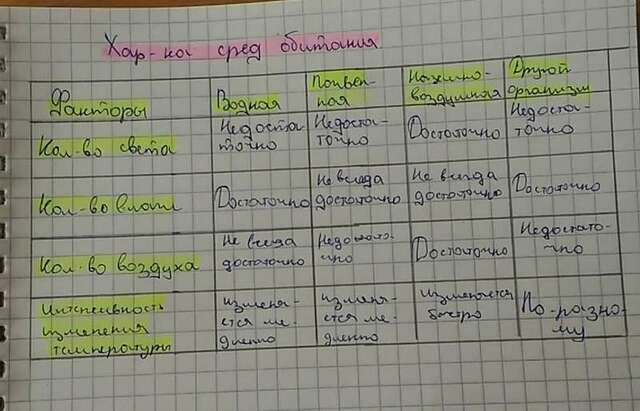 Хар-ка сред обитания
Факторы Водная Почвен-ная Наземно-воздушная Другой организм
Кол-во света Недоста-точно Недоста-точно Достаточно Недоста-точно
Кол-во влаги Достаточно Не всегда достаточно Не всегда достаточно Достаточно
Кол-во воздуха Не всегда достаточно Недостато-чно Достаточно Недостато-чно
Интенсивность изменения температуры изменя-ется ме-дленно изменя-ется ме-дленно изменяется быстро По-разно-му